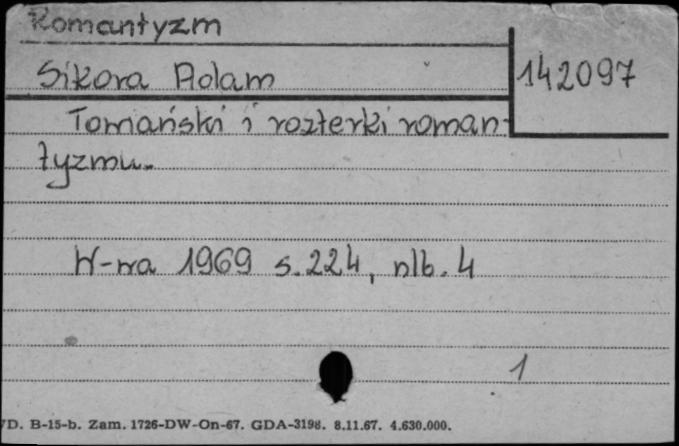 Romantyzm
Sikora Adam
142097
Tomański i rozterki roman-
tyzmu.
W-wa 1969 s. 224, nlb. 4
1
D. B-15-b. Zam. 1726-DW-On-67. GDA-3198. 8.11.67. 4.630.000.